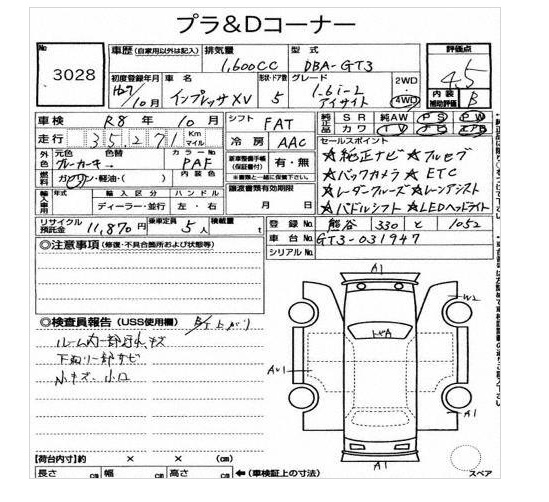 プラ&Dコーナー
No 3028
車歴 (自家用以外は記入) 排気量 1,600CC 型式 DBA-GT3
評価点 4.5
内装補助評価 B
初度登録年月 H29/10月 車名 インプレッサXV 形状・ドア数 5 グレード 1.6i-L アイサイト 2WD 4WD
車検 R8年 10月 シフト FAT
走行 35,271 Km マイル 冷房 AAC
純正品 SR 純AW PS PW
カワ TV ナビ エアB
外色 元色 グレーカキー→ 色替 カラーNo. PAF
新車整備手帳(保証書付) 有・無
※書類と一緒に保管して下さい。
燃料 ガソリン・軽油・( ) 内装色
譲渡書類有効期限 月 日
輸入車用 輸入区分 ディーラー・並行 ハンドル 左・右
セールスポイント
★純正ナビ ★フルセグ
★バックカメラ ★ETC
★レーダークルーズ ★レーンアシスト
★パドルシフト ★LEDヘッドライト
リサイクル預託金 11,870円 乗車定員 5人 積載量 t
登録No. 熊谷 330 と 1052
車台No. GT3-031947
シリアルNo.
◎注意事項 (修復・不具合箇所および状態等)
◎検査員報告 (USS使用欄)
ルーム内一部汚れキズ
下廻り一部サビ
小キズ、小凹
A1
W2
トビA
AU1
A1
A1
スペア
【荷台内寸】約 × × (cm)
長さ cm 幅 cm 高さ cm ←(車検証上の寸法)